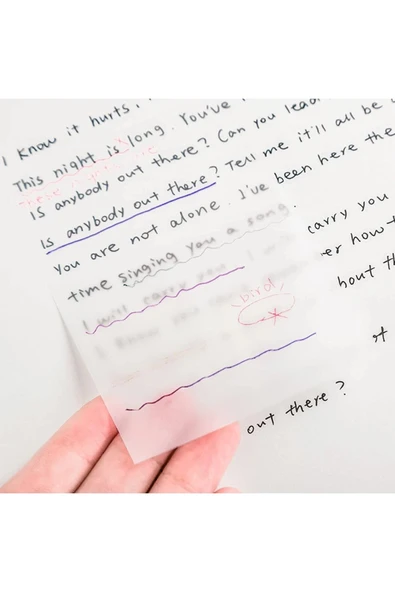 I know it hurts,
This night is long. You've
Is anybody out there? Can you lead
Is anybody out there? Tell me it'll all be
You are not alone. I've been here the
time singing you a song.
carry you
I will carry you.
er how t
I know you
bird
hout th
of
out there?